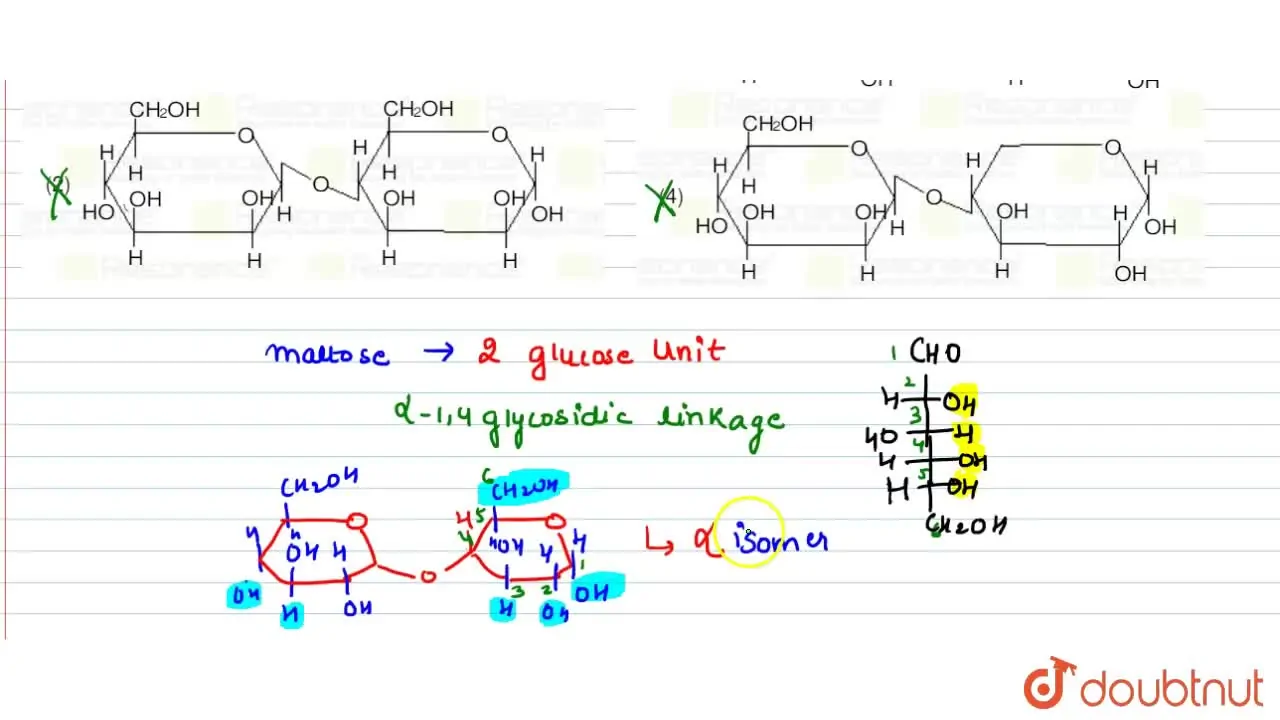 H OH H OH
CH2OH CH2OH CH2OH
O O O O
H H H H H
H H H
(2) O (4) O
OH OH OH OH OH OH OH H
HO H OH HO H OH
H H H H H H H OH
maltose → 2 glucose Unit
α-1,4 glycosidic linkage
1 CHO
2 H OH
3 HO H
4 H OH
5 H OH
6 CH2OH
CH2OH O H H OH H OH H OH
O
6 CH2OH H 5 4 O H OH H H 1 H 3 2 OH OH
↳ α isomer
doubtnut